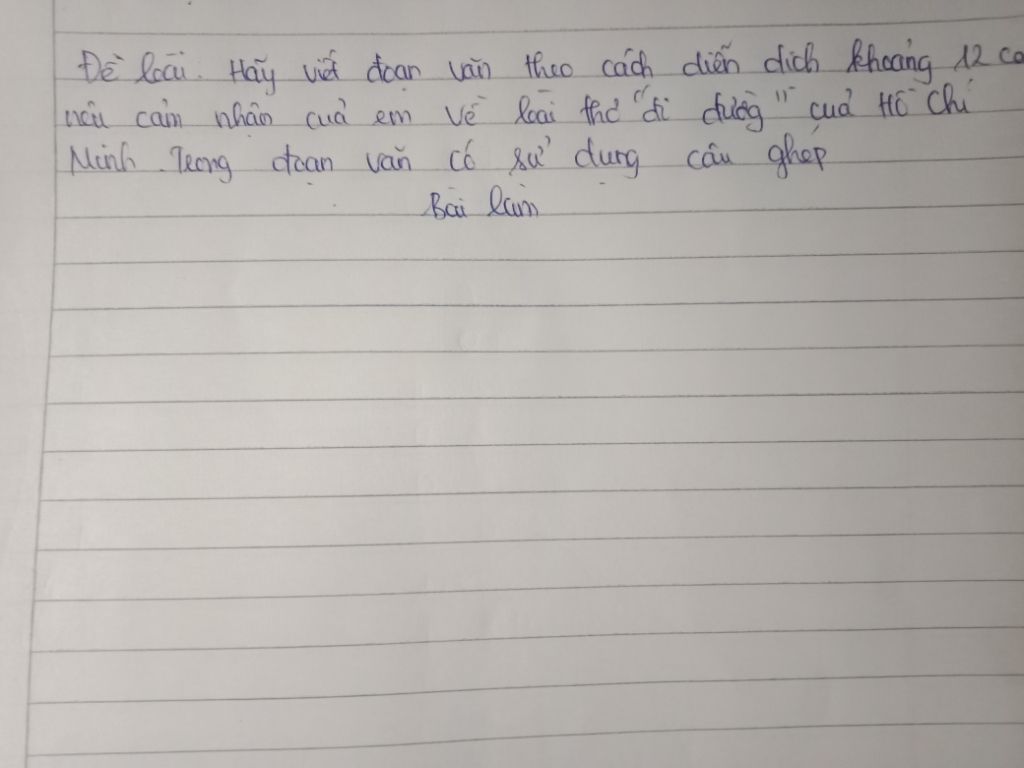 Đề bài. Hãy viết đoạn văn theo cách diễn dịch khoảng 12 câ
nêu cảm nhận của em về bài thơ "đi đường" của Hồ Chí
Minh. Trong đoạn văn có sử dụng câu ghép
Bài làm